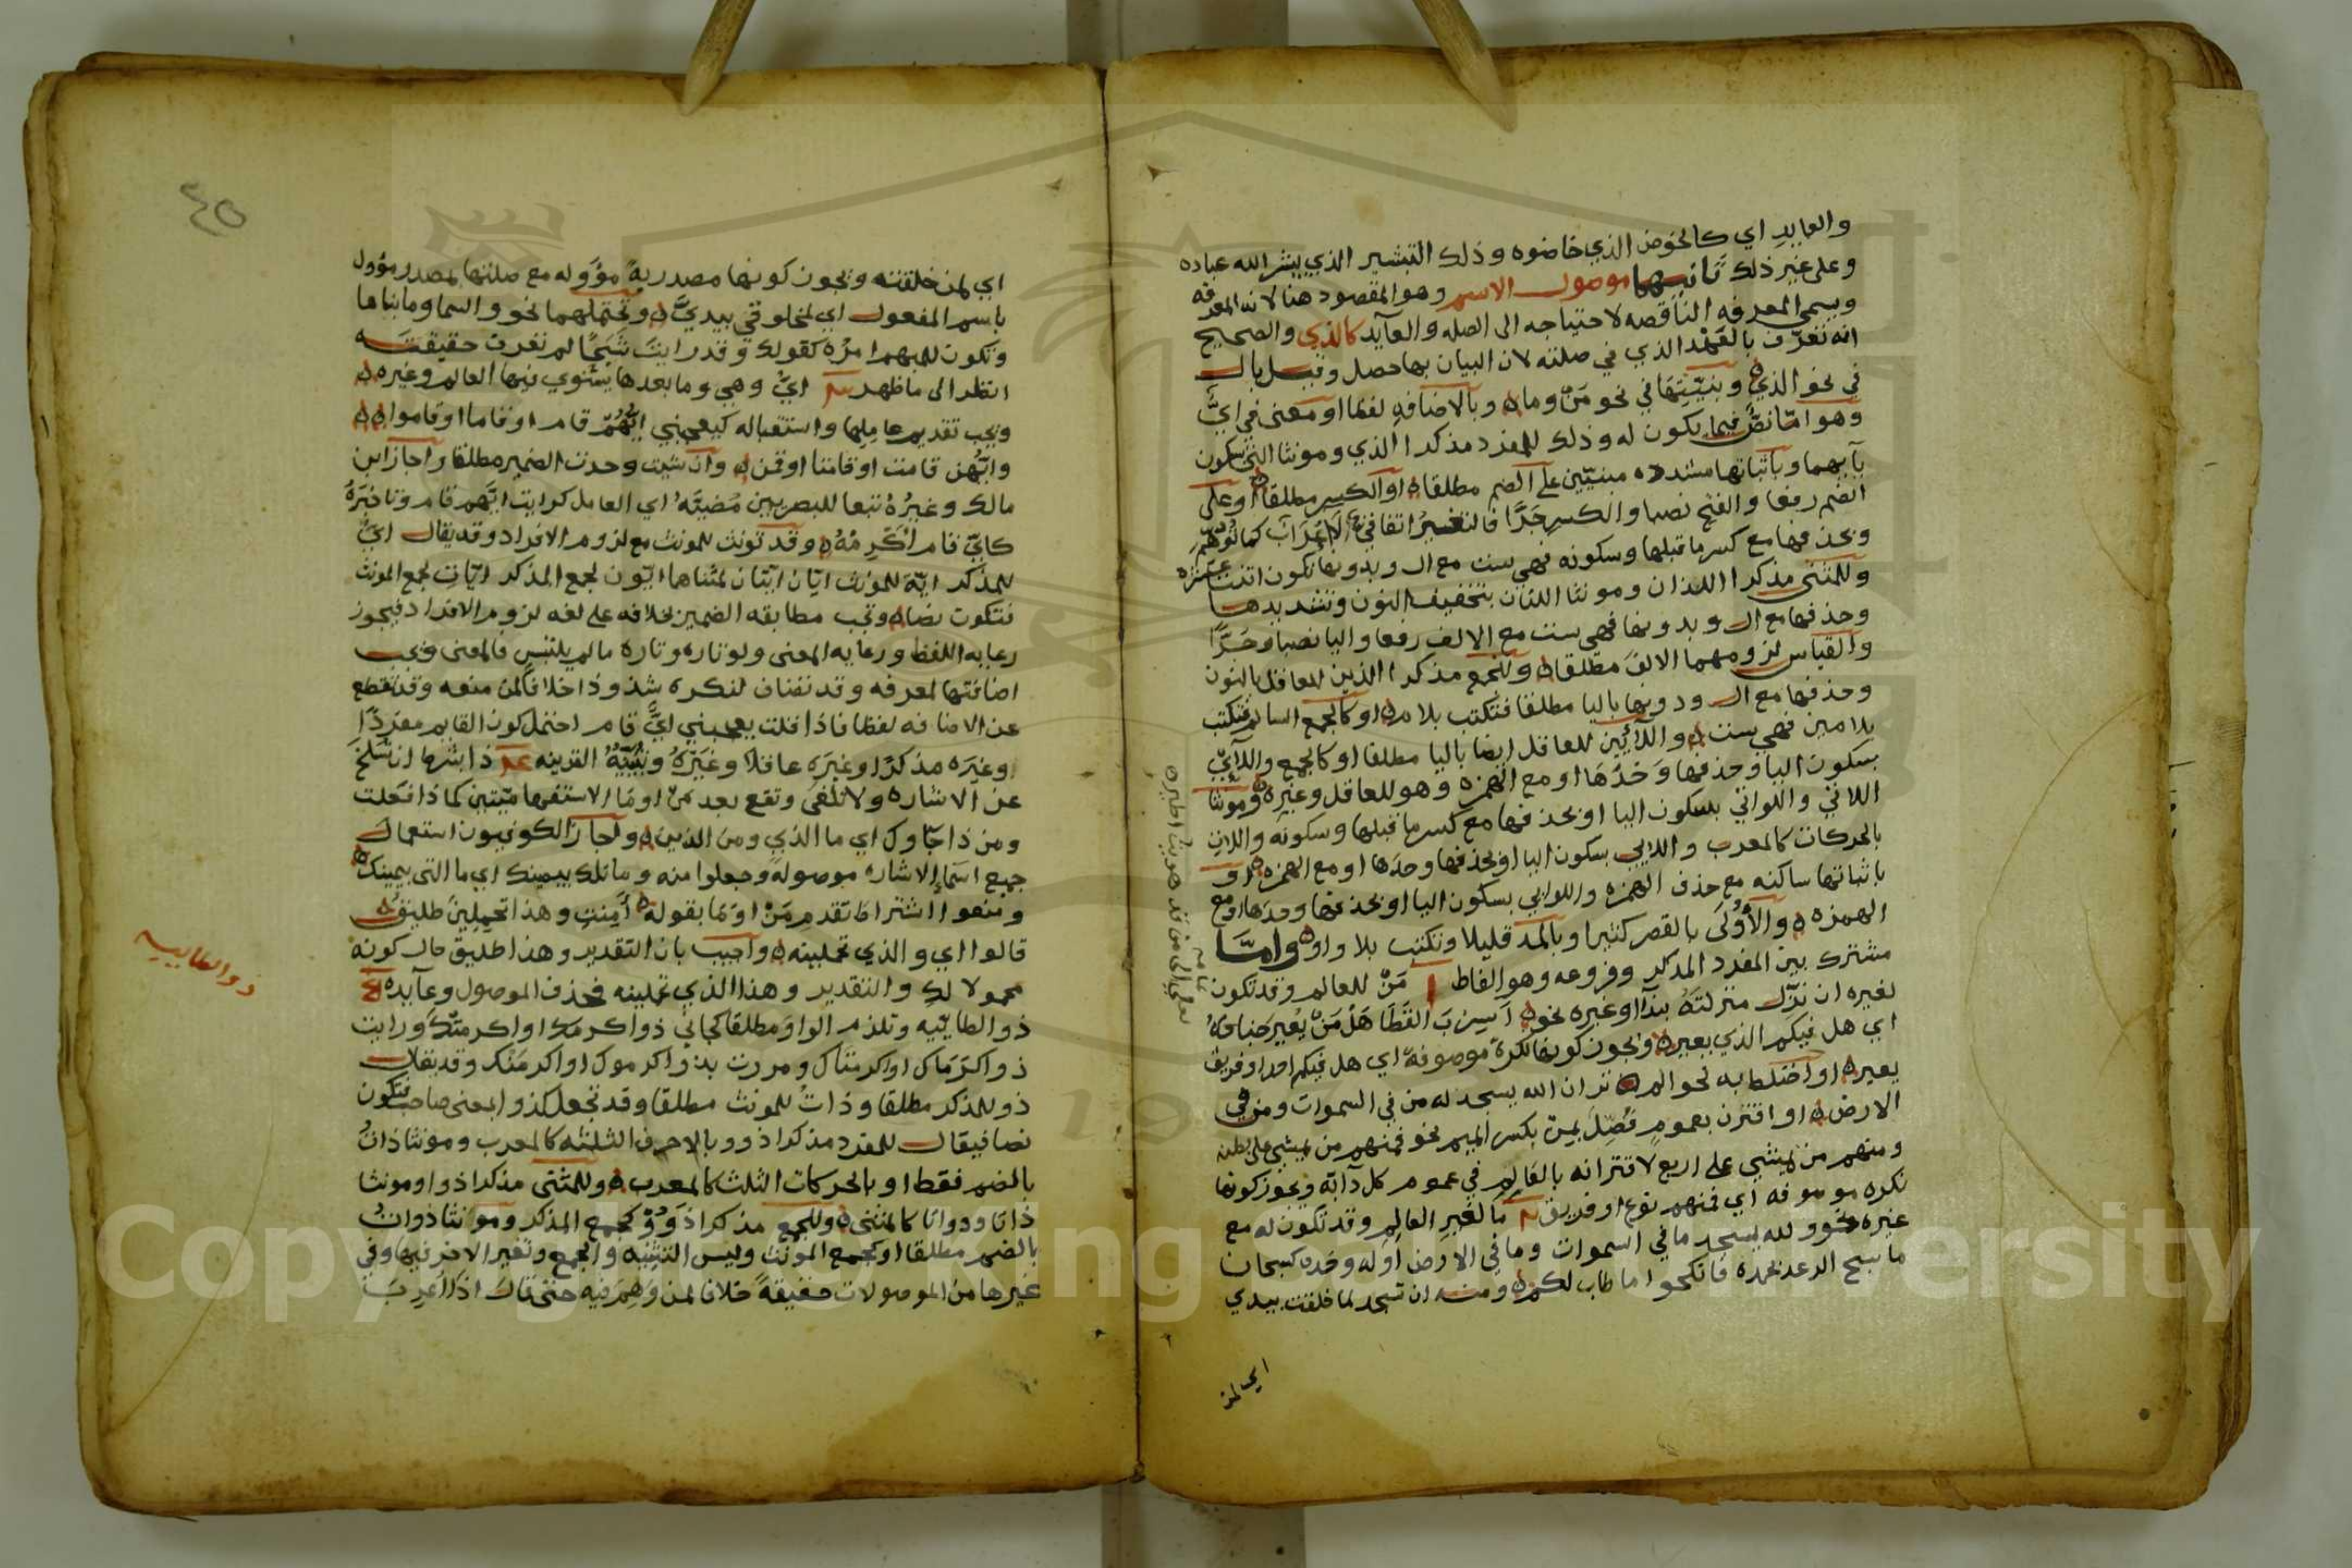 والعايد اي كالخوض الذي خاضوه وذلك التبشير الذي يبشر الله عباده
وعلى غير ذلك ثانيهما موصول الاسم وهو المقصود هنا لانه المعرفه
ويسمى المعرفه الناقصه لاحتياجه الى الصله والعآيد كالذي والصحيح
انه تعرّف بالعهد الذي في صلته لان البيان بها حصل وقيل بال
في نحو الذي وبنيّتها في نحو مَنْ وما وبالاضافه لفظا او معنى في ايّ
وهو امّا نصٌّ فيما يكون له وذلك للمفرد مذكرا الذي ومونثا التي بسكون
يآيهما وباثباتها مشدده مبنيّين على الضم مطلقا او الكسر مطلقا او على
الضم رفعا والفتح نصبا والكسر جرّا فالتغيير اتفاقيّ لا اعراب كما توهم
وبحذفها مع كسر ما قبلها وسكونه فهي ست مع ال وبدونها تكون اثنتي عشره
وللمثنى مذكرا اللذان ومونثا اللتان بتخفيف النون وتشديدها
وحذفها مع ال وبدونها فهي ست مع الالف رفعا واليا نصبا وجرّا
والقياس لزومهما الالف مطلقا وللجمع مذكرا الذين للعاقل بالنون
وحذفها مع ال ودونها باليا مطلقا فتكتب بلام او كالجمع السالم فتكتب
بلامين فهي ست واللآئين للعاقل ايضا باليا مطلقا او كالجمع واللآئي
بسكون اليا وحذفها وحدها او مع الهمزه وهو للعاقل وغيره ومونثا
اللاتي واللواتي بسكون اليا او بحذفها مع كسر ما قبلها وسكونه واللات
بالحركات كالمعرب واللايي بسكون اليا او بحذفها وحدها او مع الهمزه او
باثباتها ساكنه مع حذف الهمزه واللوايي بسكون اليا او بحذفها وحدها او مع
الهمزه والأُولَى بالقصر كثيرا وبالمد قليلا وتكتب بلا واو وامّا
مشترك بين المفرد المذكر وفروعه وهو الفاظ ا مَنْ للعالم وقد تكون
لغيره ان نزّل منزلته بندآ او غيره نحو أسِربَ القَطَا هَلْ مَنْ يُعِير جناحهُ
اي هل فيكم الذي يعيره ويجوز كونها نكرة موصوفة اي هل فيكم احد او فريق
يعيره او اختلط به نحو الم تر ان الله يسجد له من في السموات ومن في
الارض او اقترن بعموم فُصِّل بمن بكسر الميم نحو فمنهم من يمشي على بطنه
ومنهم من يمشي على اربع لاقترانه بالعالم في عموم كل دآبّه ويجوز كونها
نكره موصوفه اي فمنهم نوع او فريق ما لغير العالم وقد تكون له مع
غيره نحو ولله يسجد ما في السموات وما في الارض او له وحده كسبحان
ما يسبح الرعد بحمده فانكحوا ما طاب لكم ومنه ان تسجد لما خلقت بيدي
اي لمن
لعلي الى من قد هويت اطير
تمامه
٤٥
اي لمن خلقته ويجوز كونها مصدرية مؤوله مع صلتها بمصدر مؤول
باسم المفعول اي لمخلوقي بيديّ وتحتملهما نحو والسما وما بناها
وتكون للمبهم امره كقولك وقد رايت شبحًا لم تعرف حقيقته
انظر الى ما ظهر ايُّ وهي وما بعدها يستوي فيها العالم وغيره
ويجب تقديم عاملها واستقباله كيعجبني ايُّهُمْ قام او قاما او قاموا
وايّهن قامت او قامتا او قمن وان شيت وحدت الضمير مطلقا واجاز ابن
مالك وغيرُهُ تبعا للبصريين مُضيَّهُ اي العامل كرايت ايّهم قام وتاخيرَهُ
كايّ قام اُكْرِمُهُ وقد تونث للمونث مع لزوم الافراد وقد يقال ايّ
للمذكر ايّة للمونث ايّان ايّتان لمثناهما ايّون لجمع المذكر ايّات لجمع المونث
فتكون نصا وتجب مطابقه الضمير بخلافه على لغه لزوم الافراد فيجوز
رعايه اللفظ ورعايه المعنى ولو تاره وتاره ما لم يلتبس فالمعنى ويجب
اضافتها لمعرفه وقد تضاف لنكره شذوذا خلافا لمن منعه وقد تقطع
عن الاضافه لفظا فاذا قلت يعجبني ايٌّ قام احتمل كون القايم مفردًا
وغيره مذكرًا وغيرَه عاقلا وغيرَهُ وتُبيّنُهُ القرينه ذا بشرط ان تنسلخ
عن الاشاره ولا تلغى وتقع بعد مَنْ او مَا الاستفهاميّتين كما ذا فعلت
ومن ذا جآوك اي ما الذي ومن الذين واجاز الكوفيون استعمال
جميع اسمآ الاشاره موصولة وجعلوا منه وما تلك بيمينك اي ما التي بيمينك
ومنعوا اشتراط تقدم مَنْ او مَا بقوله أمِنتِ وهذا تحملين طليق
قالوا اي والذي تحملينه واجيب بان التقدير وهذا طليق حال كونه
محمولا لكِ والتقدير وهذا الذي تحملينه فحذف الموصول وعآيده
ذو الطآييه وتلزم الواو مطلقا كجاني ذو اكرمك او اكرمتك ورايت
ذو اكرماك او اكرمتاك ومررت بذو اكرموك او اكرمنك وقد يقال
ذو للمذكر مطلقا وذاتُ للمونث مطلقا وقد تجعل كذو المعنى صاحب فتكون
نصا فيقال للمفرد مذكرا ذو وبالاحرف الثلثه كالمعرب ومونثا ذاتُ
بالضم فقط او بالحركات الثلث كالمعرب وللمثنى مذكرا ذوا ومونثا
ذاتا وذواتا كالمثنى وللجمع مذكرا ذوُو كجمع المذكر ومونثا ذواتُ
بالضم مطلقا او كجمع المونث وليس التثنيه والجمع وتغير الاخر فيها وفي
غيرها من الموصولات حقيقةً خلافا لمن وَهِمَ فيه حتى قال اذا اُعرِبَ
ذو الطاييه
Copyright © King Saud University